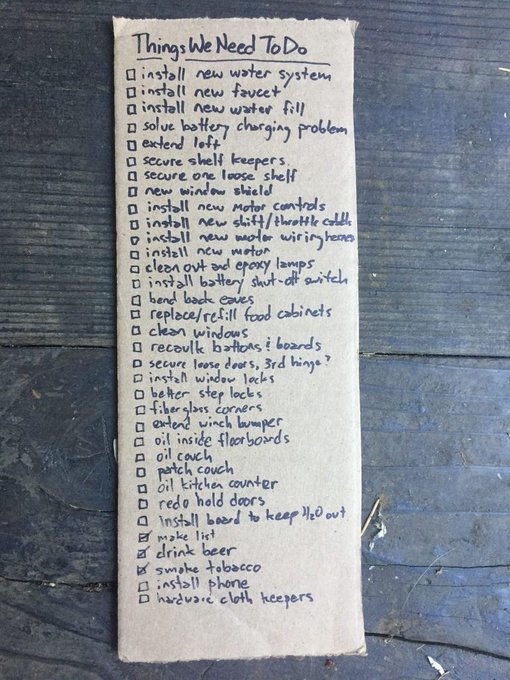 Things We Need To Do
install new water system
install new faucet
install new water fill
solve battery charging problem
extend loft
secure shelf keepers.
secure one loose shelf
new window shield
install new motor controls
install new shift/throttle cables
install new motor wiring
install new motor
clean out and epoxy lamps
install battery shut-off switch
bend back eaves
replace/refill food cabinets
clean windows
recaulk battons & boards
secure loose doors, 3rd hinge?
install window locks
better step locks
fiberglass corners
extend winch bumper
oil inside floorboards
oil couch
patch couch
oil kitchen counter
redo hold doors
install board to keep H2O out
make list
drink beer
smoke tobacco
install phone
hardware cloth keepers